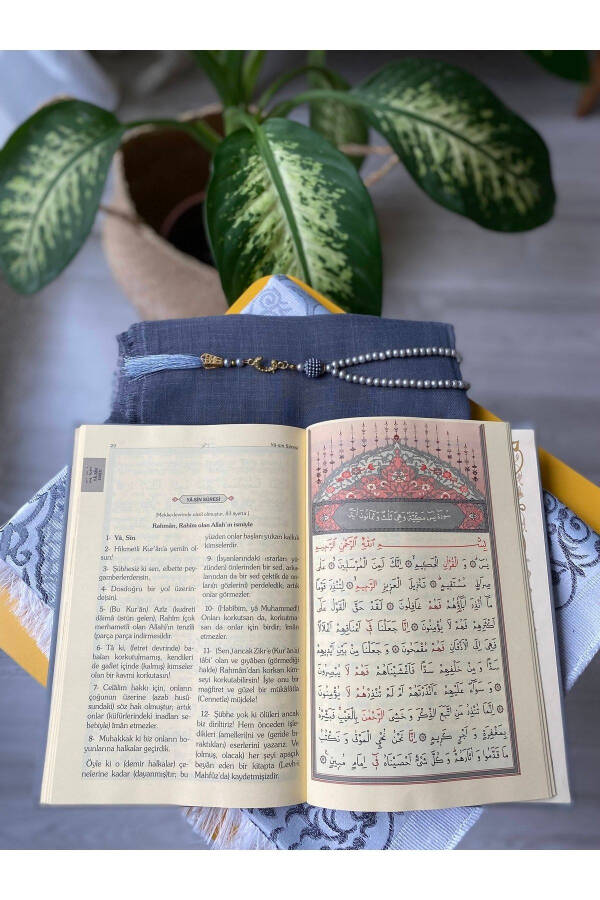 20
Yâ-Sin Sûresi
YÂ-SİN SÛRESİ
[Mekke devrinde nâzil olmuştur, 83 ayettir.]
Rahmân, Rahîm olan Allah'ın ismiyle
1- Yâ, Sîn
2- Hikmetli Kur'ân'a yemîn ol-
sun!
3- Şübhesiz ki sen, elbette pey-
gamberlerdensin,
4- Dosdoğru bir yol üzerin-
de(sin).
5- (Bu Kur'ân) Azîz (kudreti
dâimâ üstün gelen), Rahîm (çok
merhametli olan Allah)'ın tenzîli
(parça parça indirmesi)dir.
6- Tâ ki, (fetret devrinde) ba-
baları korkutulmamış, kendileri
de gaflet içinde (kalmış) kimseler
olan bir kavmi korkutasın.
7- Celâlim hakkı için, onların
çoğunun üzerine (azab hakkı-
sundaki) söz hak olmuştur; artık
onlar (küfürlerindeki inadları se-
bebiyle) îmân etmezler.
8- Muhakkak ki biz onların bo-
yunlarına halkalar geçirdik.
Öyle ki o (demir halkalar) çe-
nelerine kadar (dayanmış)tır; bu
yüzden onlar başları yukarı kalkık
kimselerdir.
9- (İsyanlarındaki ısrarları yü-
zünden) önlerinden bir sed, arka-
larından da bir sed çektik de on-
ların gözlerini) perdeledik; artık
onlar görmezler.
10- (Habîbim, yâ Muhammed!)
Onları korkutsan da, korkutma-
san da onlar için birdir; îmân
etmezler.
11- (Sen,) ancak Zikr'e (Kur'ân'a)
tâbi' olan ve gıyâben (görmediği
halde) Rahmân'dan korkan kim-
seyi korkutabilirsin! İşte onu bir
mağfiret ve güzel bir mükâfâtla
(Cennetle) müjdele!
12- Şübhe yok ki ölüleri ancak
biz diriltiriz! Hem önceden işle-
dikleri (amelleri)ni ve (geride bı-
raktıkları) eserlerini yazarız. Ve
(olmuş, olacak) her şeyi apaçık
beyân eden bir kitapta (Levh-i
Mahfûz'da) kaydetmişizdir.
سورة يس مكية وهي ثلاث وثمانون آية
بِسْمِ اللّٰهِ الرَّحْمٰنِ الرَّحِيمِ
يٰسٓ ۝ وَالْقُرْاٰنِ الْحَكِيمِ ۝ اِنَّكَ لَمِنَ الْمُرْسَلِينَ ۝ عَلٰى
صِرَاطٍ مُسْتَقِيمٍ ۝ تَنْزِيلَ الْعَزِيزِ الرَّحِيمِ ۝ لِتُنْذِرَ قَوْمًا
مَا اُنْذِرَ اٰبَاؤُهُمْ فَهُمْ غَافِلُونَ ۝ لَقَدْ حَقَّ الْقَوْلُ عَلٰى
اَكْثَرِهِمْ فَهُمْ لَا يُؤْمِنُونَ ۝ اِنَّا جَعَلْنَا فِي اَعْنَاقِهِمْ اَغْلَالًا
فَهِيَ اِلَى الْاَذْقَانِ فَهُمْ مُقْمَحُونَ ۝ وَجَعَلْنَا مِنْ بَيْنِ اَيْدِيهِمْ
سَدًّا وَمِنْ خَلْفِهِمْ سَدًّا فَاَغْشَيْنَاهُمْ فَهُمْ لَا يُبْصِرُونَ
۝ وَسَوَاءٌ عَلَيْهِمْ ءَاَنْذَرْتَهُمْ اَمْ لَمْ تُنْذِرْهُمْ لَا يُؤْمِنُونَ ۝
اِنَّمَا تُنْذِرُ مَنِ اتَّبَعَ الذِّكْرَ وَخَشِيَ الرَّحْمٰنَ بِالْغَيْبِ فَبَشِّرْهُ
بِمَغْفِرَةٍ وَاَجْرٍ كَرِيمٍ ۝ اِنَّا نَحْنُ نُحْيِ الْمَوْتٰى وَنَكْتُبُ
مَا قَدَّمُوا وَاٰثَارَهُمْ وَكُلَّ شَيْءٍ اَحْصَيْنَاهُ فِي اِمَامٍ مُبِينٍ ۝